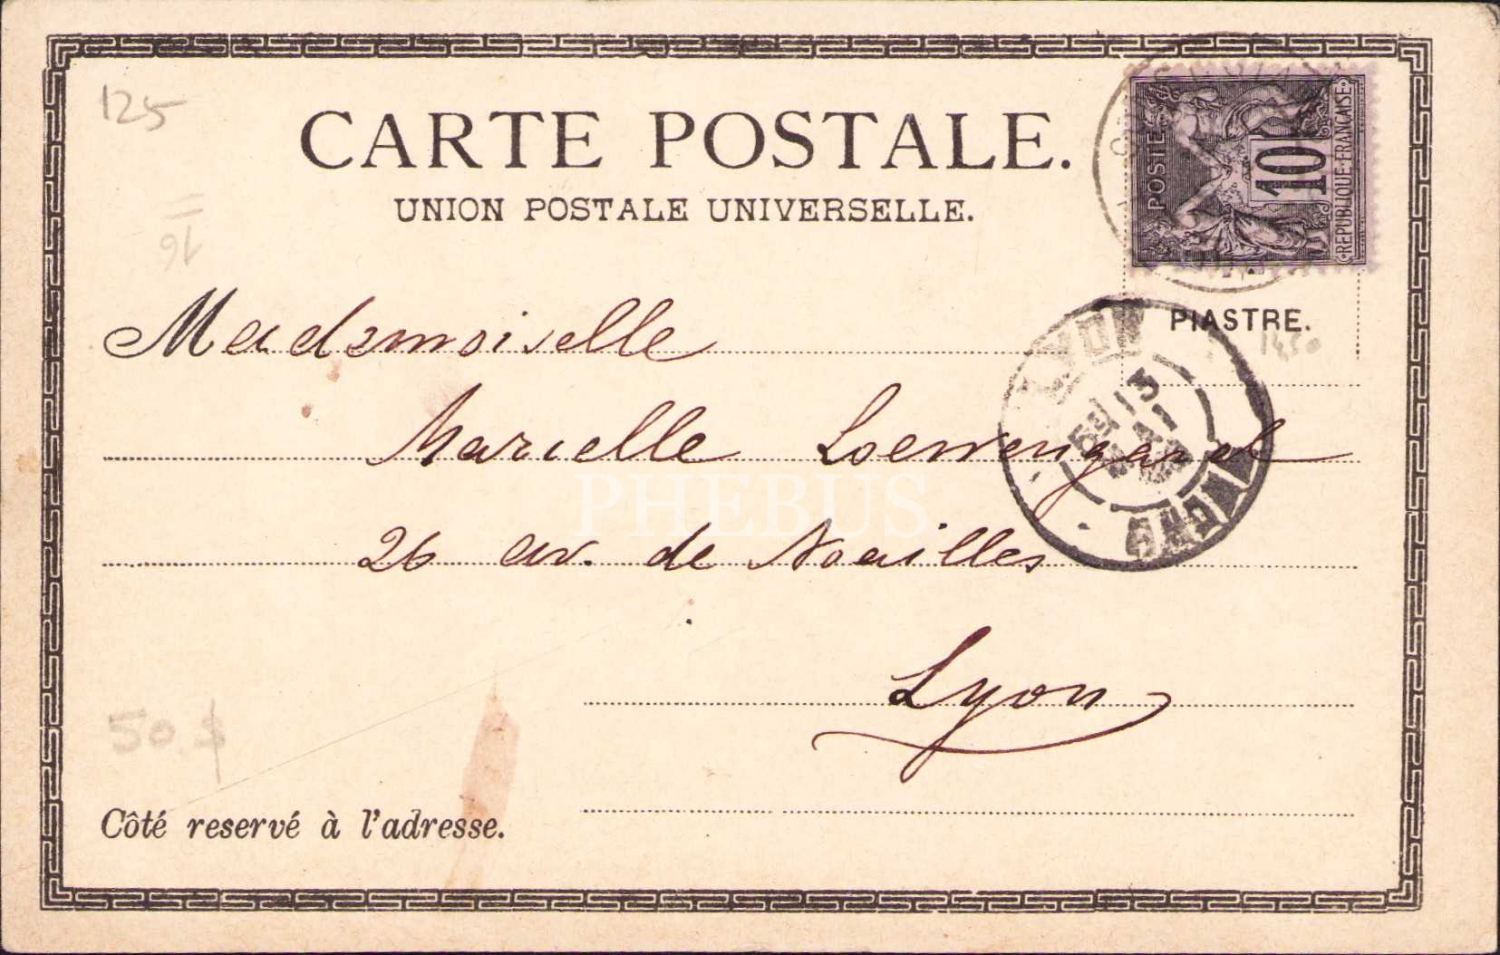 125
CARTE POSTALE.
UNION POSTALE UNIVERSELLE.
POSTES
10
REPUBLIQUE FRANCAISE
16
PIASTRE.
Mademoiselle
LYON
13
Marcelle Loewengard
PHEBUS
26 av. de Noailles
Lyon
50 $
Côté reservé à l'adresse.